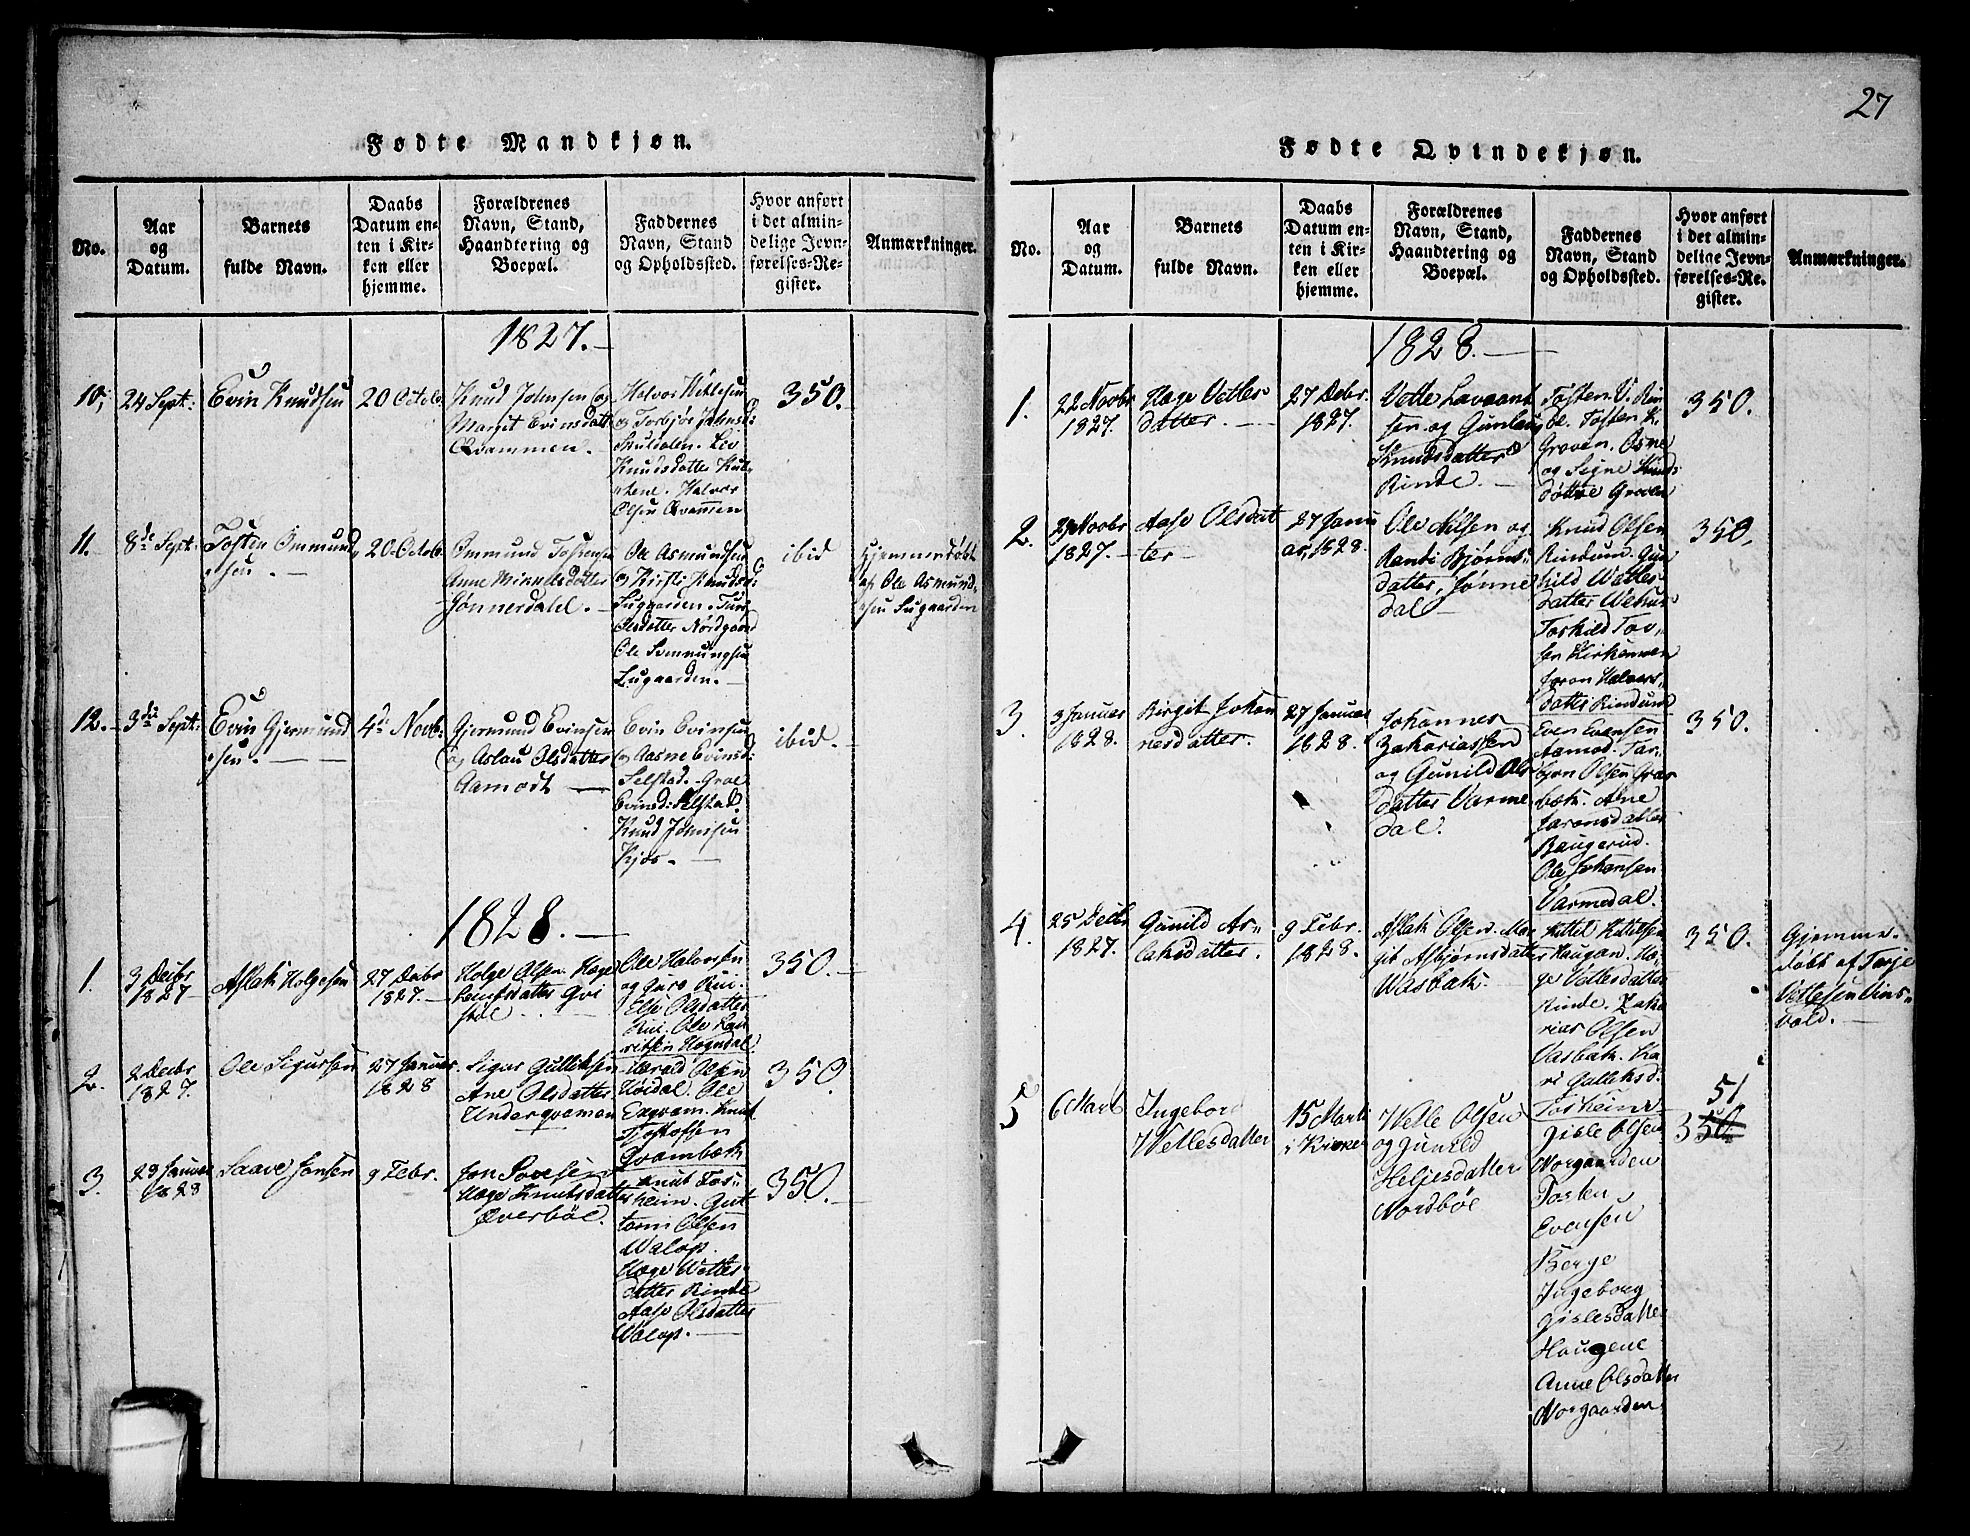 Fødte Mandkjøn.
No.
Aar
og
Datum.
Barnets
fulde Navn.
Daabs
Datum en-
ten i Kir-
ken eller
hjemme.
Forældrenes
Navn, Stand,
Haandtering og
Boepæl.
Faddernes
Navn, Stand
og Opholdssted.
Hvor anført
i det almin-
delige Jevn-
førelses-Re-
gister.
Anmærkninger.
1827.
10,
24 Sept:
Evin Knudsen
20 Octob.
Knud Johnsen og
Margit Evinsdatt
Qvammen.
Halvor Kittelsen
og Torbjør Johnsd:
Skutialen. Liv
Knudsdatter
Halvor
Olsen Qvammen
350.
11.
8de Sept:
Tosten Ommund
sen.
20 Octob.
Ommund Tostensen
Anne Mikkelsdatter
Gönnerdahl.
Ole Asmundsen
og Kirsti Knudsd:
Lugaarden. Turi
Olsdatter Nordgaard
Ole
Lugaarden.
ibid
Hjemmedøbt
af Ole Asmund-
sen Lugaarden
12.
3die Sept:
Evin Gjermund
sen.
4de Novb:
Gjermund Evinsen
og Aslau Olsdatter
Aamodt
Evin Evinsen
og Aasne Evinsd:
Selstad. Groe
Evinsd: Selstad.
Knud Johnsen
Kjos.
ibid.
1828.
1.
3 Decbr
1827
Aslak Holgesen
27 Decbr
1827.
Holge Olsen. Hæge
Leufsdatter Qvi
støl
Ole Halvorsen
og Guro Rui.
Else Olsdatter
Rui. Ole Lau
ritsen Hogndal.
350.
2.
2 Decbr
1827.
Ole Sigursen
27 Januar.
1828
Sigur Gulliksen
Ane Olsdatter
Underqvamen
Harald Olsen
Høidal. Ole
Exqvam. Knut
Tjostofsen
Qvambæk
350
3.
23 Januar
1828
Saave Jonsen
9 Febr.
Jon Sovesen
Hæge Knutsdatter
Øverbøe.
Knut Tos-
heim. Gut
torm Olsen
Walop.
Hæge Wetles-
datter Rinde
Aase Olsdatter
Walop.
350.
27
Fødte Qvindekjøn.
No.
Aar
og
Datum.
Barnets
fulde Navn.
Daabs
Datum en-
ten i Kir-
ken eller
hjemme.
Forældrenes
Navn, Stand,
Haandtering og
Boepæl.
Faddernes
Navn, Stand
og Opholdssted.
Hvor anført
i det almin-
delige Jevn-
førelses-Re-
gister.
Anmærkninger.
1828.
1.
22 Novbr
1827.
Hæge Vetles-
datter.
27 Debr.
1827.
Vetle Lavrant
sen og Gunlau
Knudsdatter
Rinde.
Tosten V. Rin
de. Tosten K.
Groven. Osne
og Signe Knuds
døttre Groven
350.
2.
Novbr
1827.
Aase Olsdat
ter
27 Janu
ar, 1828.
Ole Nilsen og
Randi Bjørns-
datter, Jønne
dal
Knud Olsen
Rindum. Gun
hild Watles-
datter
Torkild Tov-
sen
Joron Halvors-
datter Rindum
350.
3.
3 Januar
1828.
Birgit Johan
nesdatter.
27 Januar
1828.
Johannes
Zakariassen
og Gunild Ols
datter Varme
dal.
Even Evensen
Aamod. Tar-
bjøn Olsen
bæk. Ane
Jaransdatter
Baugerud.
Ole Johansen
Varmedal.
350.
4.
25 Decbr
1827.
Gunild As-
laksdatter.
9 Febr.
1828.
Aslak Olsen. Mar
git Asbjørnsdatter
Wasbæk.
Kittel Kittelsen
Haugan. Hæ-
ge Vetlesdatter
Rinde. Zaka
rias Olsen
Vasbæk. Ka
ri Galleksd.
Tosheim
350.
Gjemme-
døbt af Tarje
Vetlesen Vins-
vald.
5
6 Marts
Ingebord
Wetlesdatter
15 Marti
i Kirken
Wetle Olsen
og Gunild
Heljesdatter
Nordbøe
Gisle Olsen
Norgaarden
Tosten
Evensen
Berge
Ingeborg
Gislesdatter
Haugene
Anne Olsdatter
Norgaarden
51
350